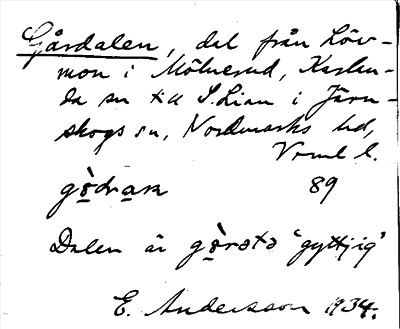 Gårdalen, dal från Löv-
mon i Mölnerud, Karlan-
da sn till S. Lian i Järn-
skogs sn, Nordmarks hd,
Vrml l.
89
Dalen är "gyttjig"
E. Andersson 1934.